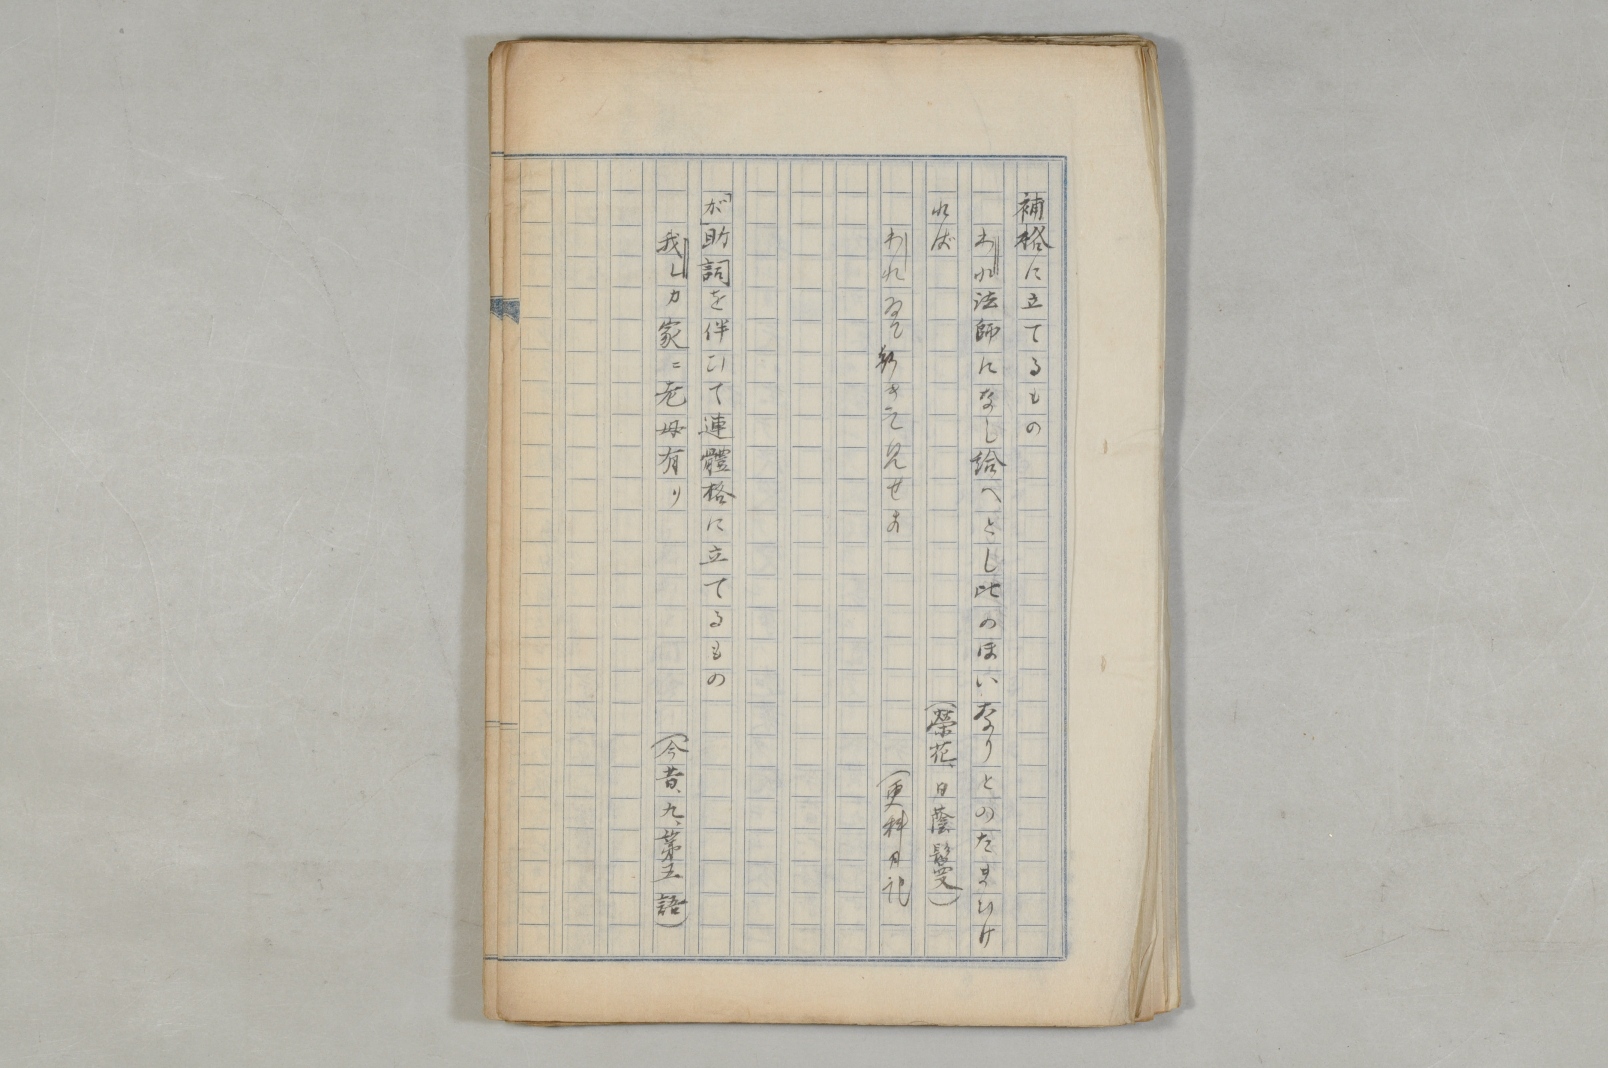 補格に立てるもの
われ法師になし給へとし此のほいなりとのたまひけ
れば
（榮花、日蔭鬘）
われゐて行きて見せよ
（更科日記）
「が」助詞を伴ひて連體格に立てるもの
我レカ家ニ老母有リ
（今昔、九、第五語）